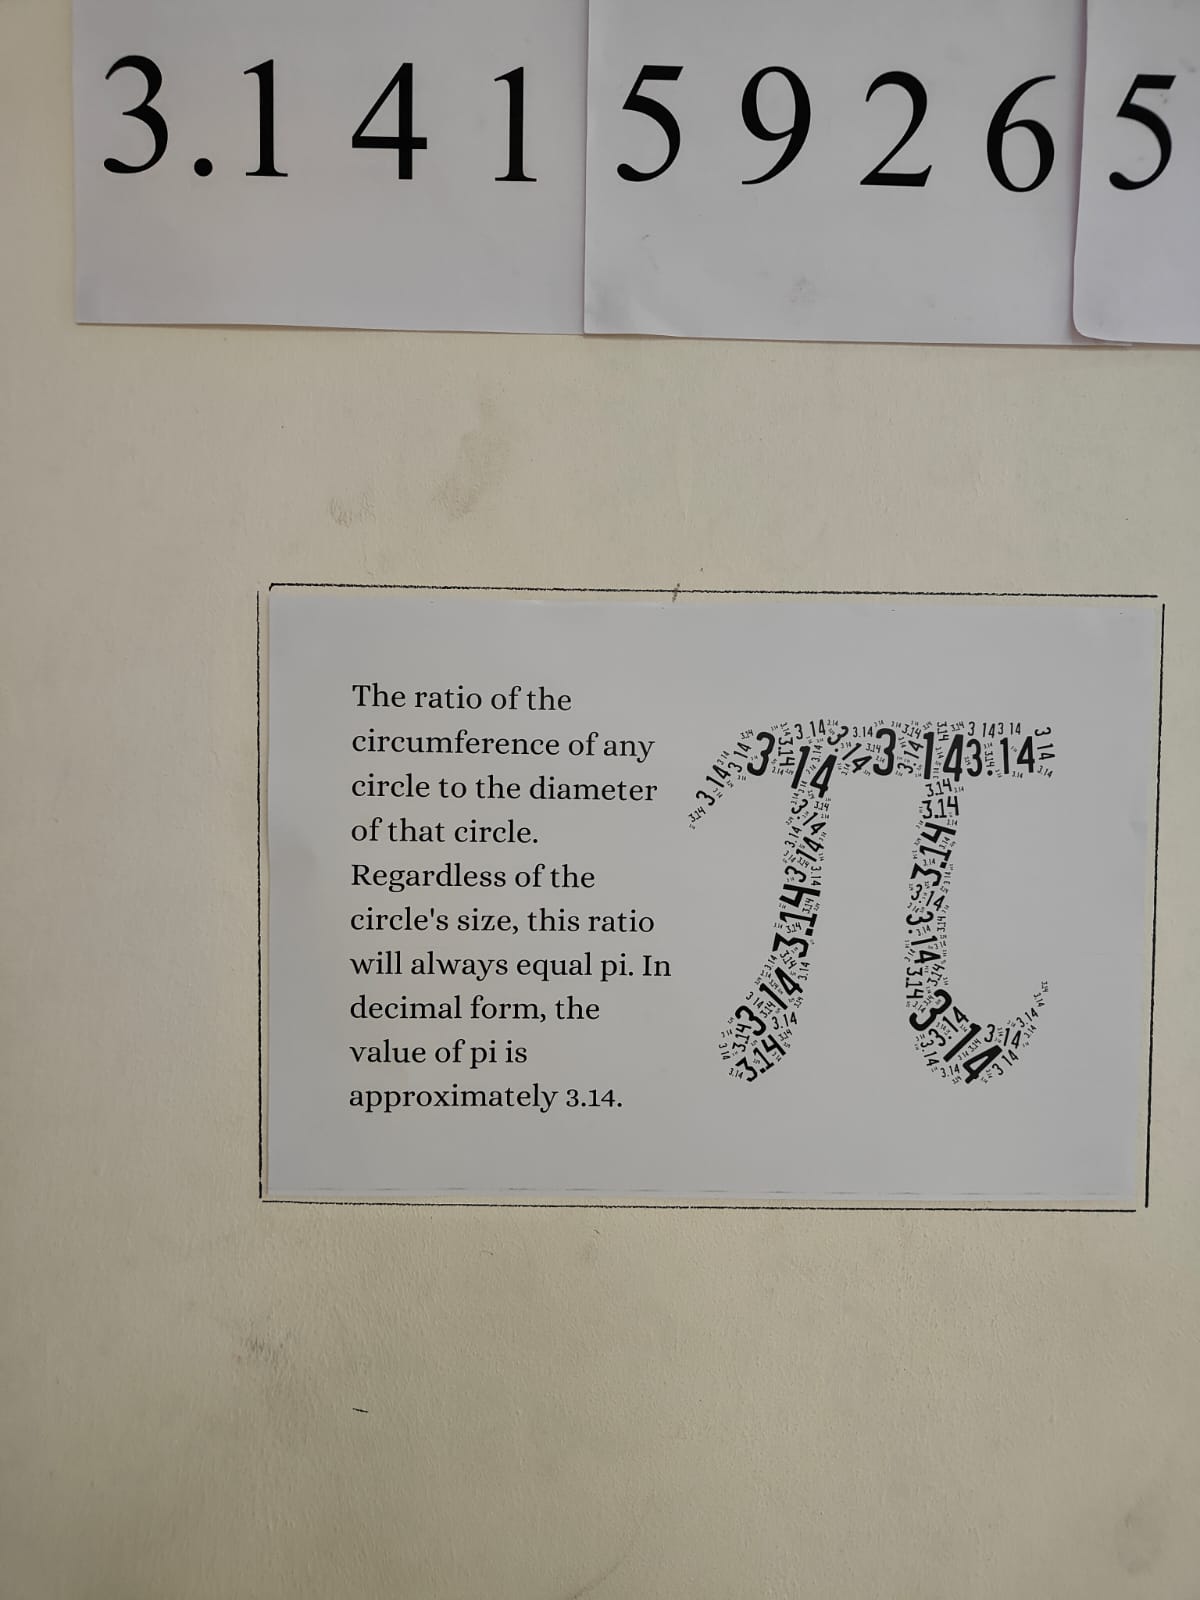 3.1 4 1 5 9 2 6 5
The ratio of the
circumference of any
circle to the diameter
of that circle.
Regardless of the
circle's size, this ratio
will always equal pi. In
decimal form, the
value of pi is
approximately 3.14.
3.14
3.14
3.14
3.14
3.14
3.14
3.14
3.14
3.14
3.14